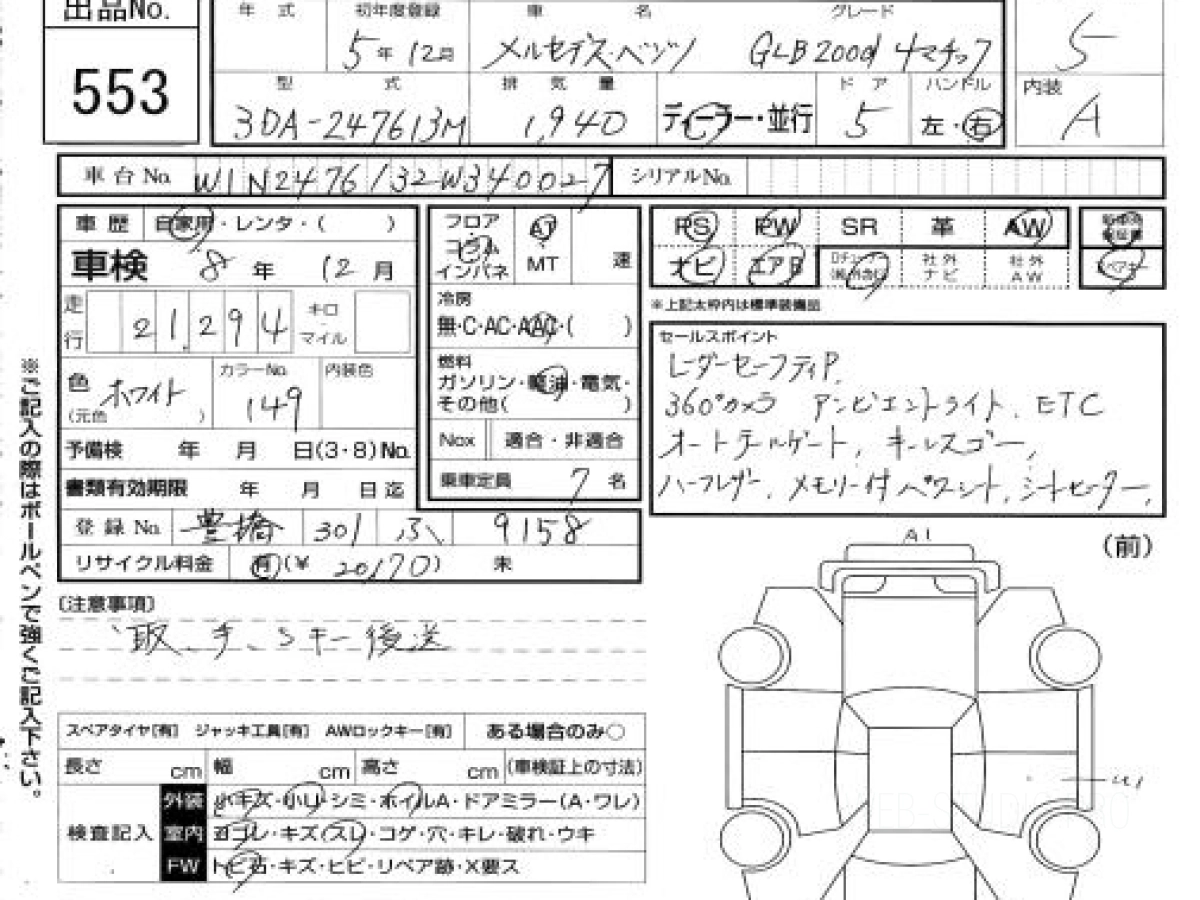 出品No.
553
年 式 初年度登録 車 名 グレード
5年12月 メルセデス・ベンツ GLB200d 4マチック
S
型 式 排 気 量 ド ア ハンドル
3DA-247613M 1,940 ディーラー・並行 5 左・右
内装
A
車台No. W1N2476132W340027 シリアルNo.
車 歴 自家用・レンタ・( )
車検 8 年 12 月
走行 21,294 キロ・マイル
色 ホワイト (元色 ) カラーNo. 149 内装色
予備検 年 月 日(3・8)No.
書類有効期限 年 月 日迄
登録No. 豊橋 301 ふ 9158
リサイクル料金 有(¥ 20170) 未
フロア コラム インパネ AT・MT 速
冷房
無・C・AC・AAC・( )
燃料
ガソリン・軽油・電気・
その他( )
Nox 適合・非適合
乗車定員 7 名
PS PW SR 革 AW
ナビ エアB 社外ナビ 社外AW
スペアキー
※上記太枠内は標準装備品
セールスポイント
レーダーセーフティP,
360°カメラ アンビエントライト, ETC
オートテールゲート, キーレスゴー,
ハーフレザー, メモリー付パワーシート, シートヒーター,
(注意事項)
取、手、Sキー後送
スペアタイヤ[有] ジャッキ工具[有] AWロックキー[有] ある場合のみ○
長さ cm 幅 cm 高さ cm (車検証上の寸法)
検査記入
外装 小キズ・小U・シミ・ホイルA・ドアミラー(A・ワレ)
室内 ヨゴレ・キズ(スレ)・コゲ・穴・キレ・破れ・ウキ
FW トビ石・キズ・ヒビ・リペア跡・X要ス
A1
(前)
U1
※ご記入の際はボールペンで強くご記入下さい。